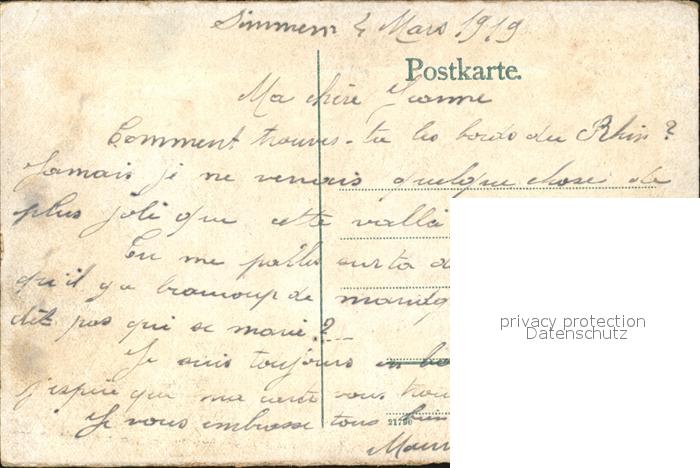 Simmern 4 Mars 1919
Postkarte.
Ma chère Jeanne
Comment trouves-tu les bords du Rhin ?
Jamais je ne verrais quelque chose de
plus joli que cette vallé
Tu me parles sur ta
qu'il y a beaucoup de mariag
dit pas qui se marie ?
Je suis toujours en bo
j'espère que ma carte vous trou
Je vous embrasse tous bien
21790
privacy protection
Datenschutz